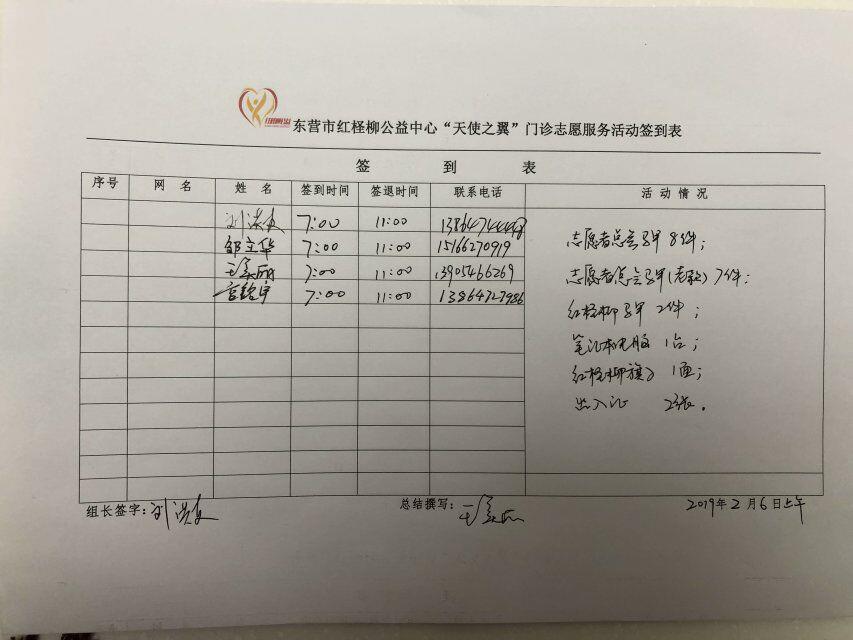 东营市红柽柳公益中心“天使之翼”门诊志愿服务活动签到表
签 到 表
序号 网 名 姓 名 签到时间 签退时间 联系电话 活 动 情 况
刘洪友 7:00 11:00
邹立华 7:00 11:00 15166270919
7:00 11:00 13905466269
7:00 11:00 13864727986
志愿者总会马甲 8件;
志愿者总会马甲(老款) 7件;
红柽柳马甲 2件;
笔记本电脑 1台;
红柽柳旗子 1面;
出入证 2张.
组长签字:刘洪友 总结撰写: 2019年2月6日上午